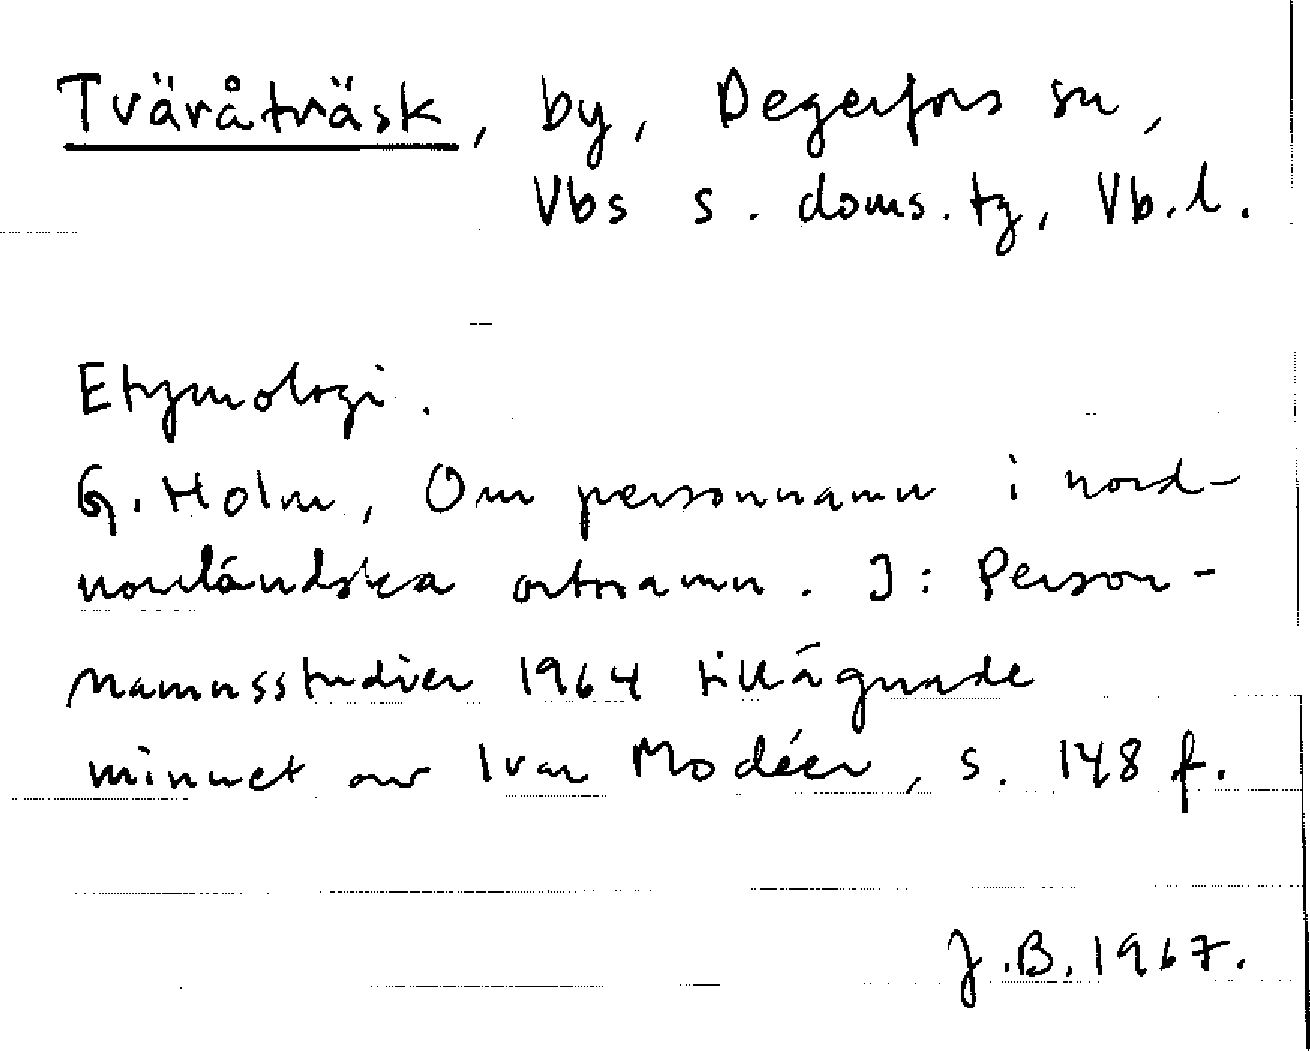 Tväråträsk, by, Degerfors sn,
Vbs s. doms. tg, Vb.l.
Etymologi.
G. Holm, Om personnamn i nord-
norrländska ortnamn. I: Person-
namnsstudier 1964 tillägnade
minnet av Ivar Modéer, s. 148 f.
J.B. 1967.